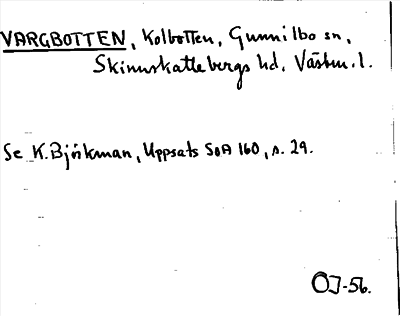 VARGBOTTEN, Kolbotten, Gunnilbo sn,
Skinnskattebergs hd. Västm. l.
Se K. Björkman, Uppsats SOA 160, s. 29.
OJ-56.